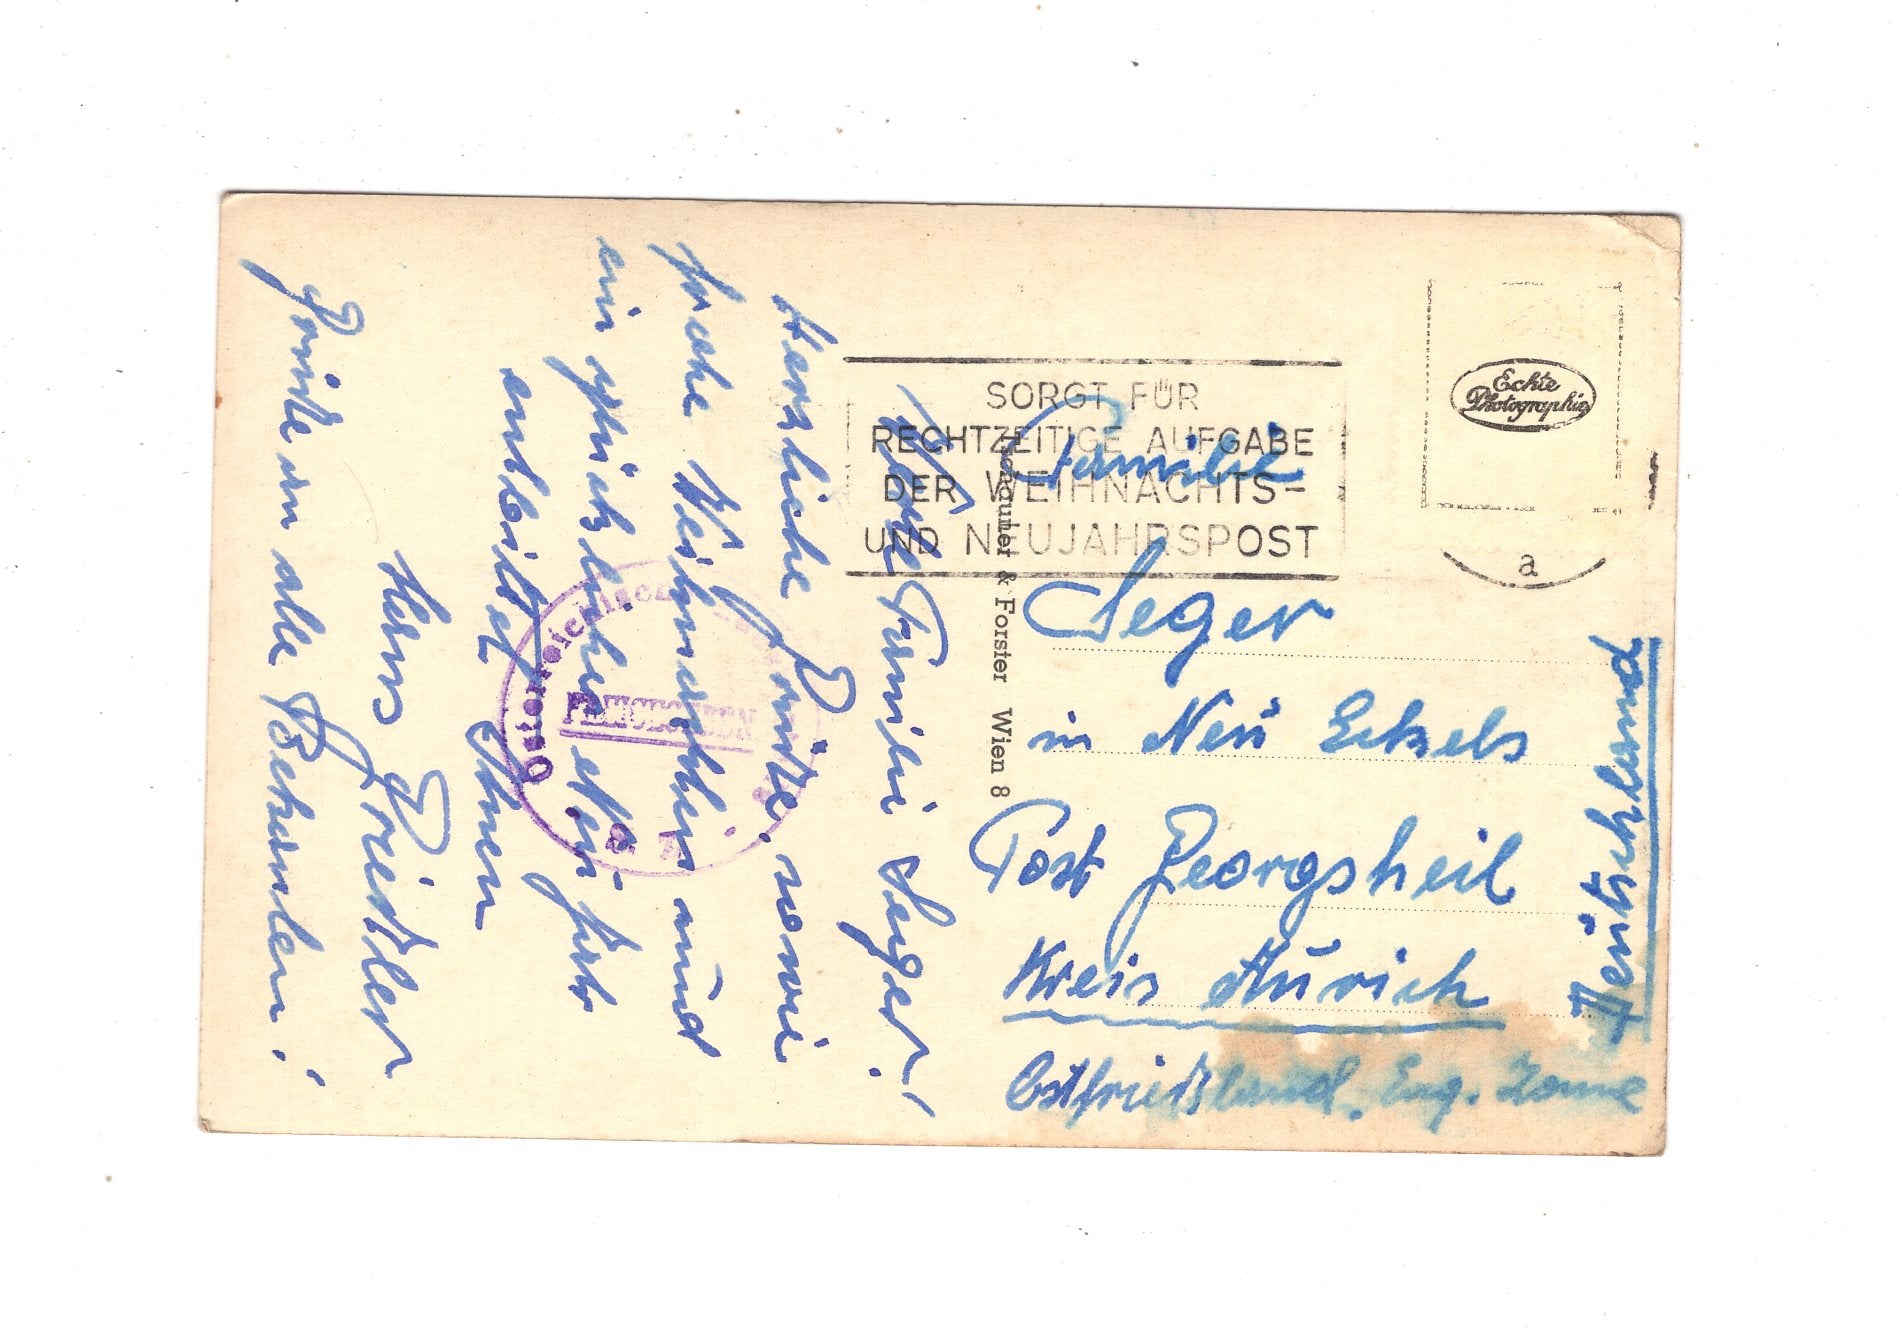 Werte Familie Seger!
Herzliche Grüße, sowie
frohe Weihnachten und
ein glückliches Neujahr
entbietet Ihnen
Hans Griestler
Grüße an alle Bekannten!
SORGT FÜR
RECHTZEITIGE AUFGABE
DER WEIHNACHTS-
UND NEUJAHRSPOST
Echte
Photographie
a
& Forster Wien 8
Familie
Seger
in Neu Ekels
Post Georgsheil
Kreis Aurich
Ostfriesland, Eng. Zone
Deutschland